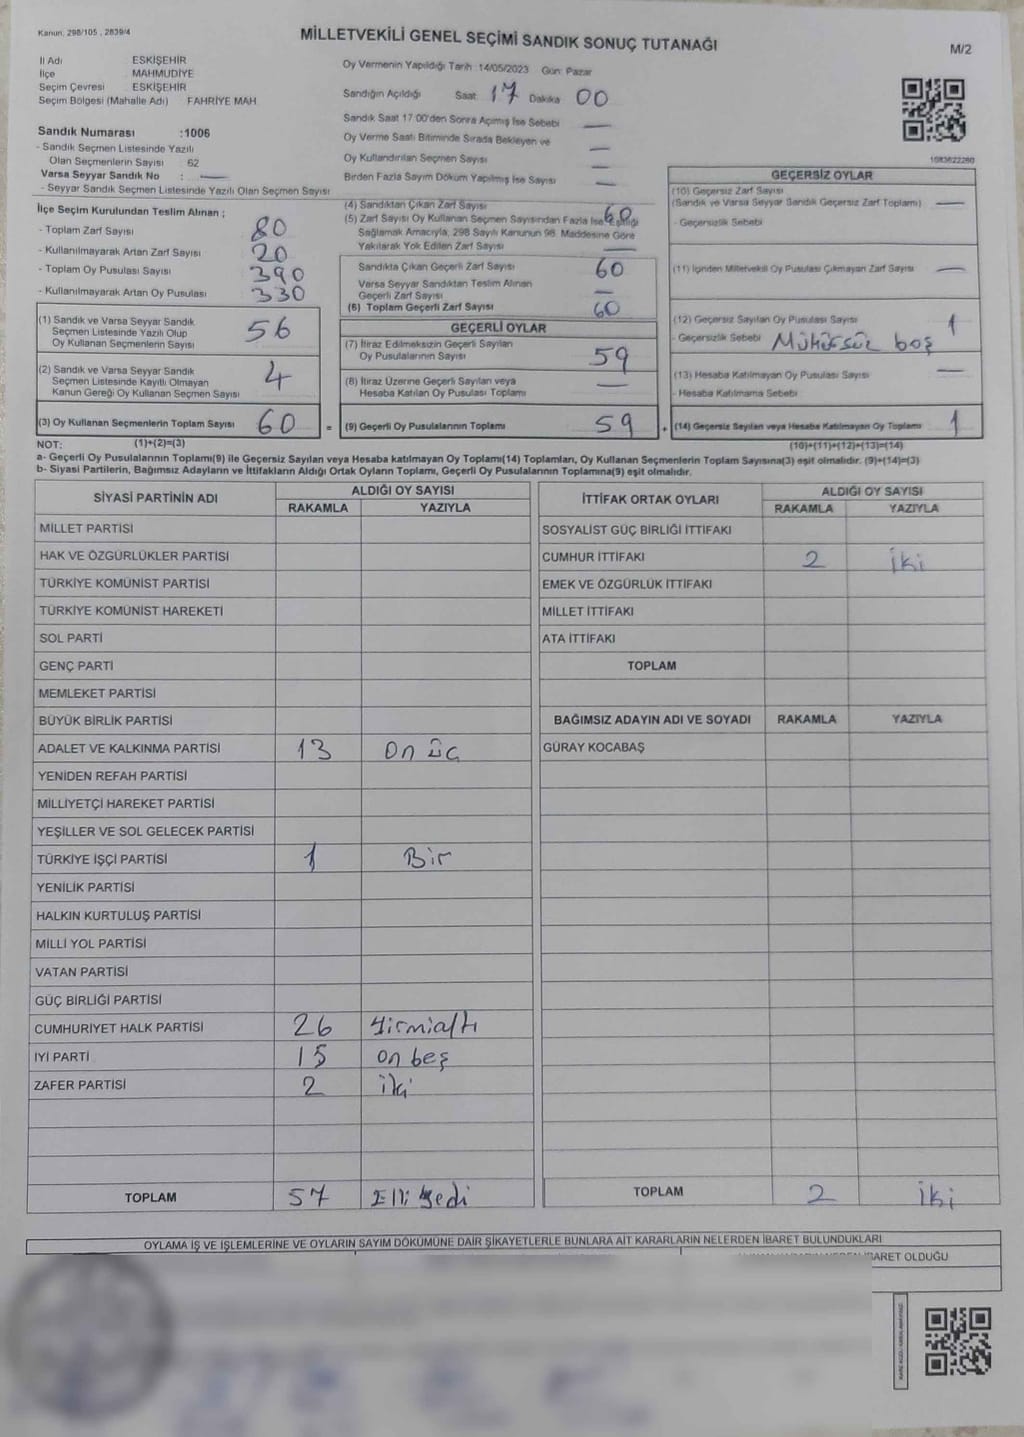 Kanun: 298/105 , 2839/4
MİLLETVEKİLİ GENEL SEÇİMİ SANDIK SONUÇ TUTANAĞI
M/2
İl Adı ESKİŞEHİR
İlçe MAHMUDİYE
Seçim Çevresi ESKİŞEHİR
Seçim Bölgesi (Mahalle Adı) FAHRİYE MAH.
Sandık Numarası :1006
- Sandık Seçmen Listesinde Yazılı
Olan Seçmenlerin Sayısı 62
Varsa Seyyar Sandık No : —
- Seyyar Sandık Seçmen Listesinde Yazılı Olan Seçmen Sayısı
Oy Vermenin Yapıldığı Tarih :14/05/2023 Gün: Pazar
Sandığın Açıldığı Saat: 17 Dakika 00
Sandık Saat 17:00'den Sonra Açılmış İse Sebebi —
Oy Verme Saati Bitiminde Sırada Bekleyen ve
Oy Kullandırılan Seçmen Sayısı —
Birden Fazla Sayım Döküm Yapılmış İse Sayısı —
1083622260
İlçe Seçim Kurulundan Teslim Alınan ;
- Toplam Zarf Sayısı 80
- Kullanılmayarak Artan Zarf Sayısı 20
- Toplam Oy Pusulası Sayısı 390
- Kullanılmayarak Artan Oy Pusulası 330
(1) Sandık ve Varsa Seyyar Sandık
Seçmen Listesinde Yazılı Olup
Oy Kullanan Seçmenlerin Sayısı 56
(2) Sandık ve Varsa Seyyar Sandık
Seçmen Listesinde Kayıtlı Olmayan
Kanun Gereği Oy Kullanan Seçmen Sayısı 4
(3) Oy Kullanan Seçmenlerin Toplam Sayısı 60
(4) Sandıktan Çıkan Zarf Sayısı 60
(5) Zarf Sayısı Oy Kullanan Seçmen Sayısından Fazla İse Eşitliği
Sağlamak Amacıyla, 298 Sayılı Kanunun 98. Maddesine Göre
Yakılarak Yok Edilen Zarf Sayısı —
Sandıkta Çıkan Geçerli Zarf Sayısı 60
Varsa Seyyar Sandıktan Teslim Alınan
Geçerli Zarf Sayısı —
(6) Toplam Geçerli Zarf Sayısı 60
GEÇERLİ OYLAR
(7) İtiraz Edilmeksizin Geçerli Sayılan
Oy Pusulalarının Sayısı 59
(8) İtiraz Üzerine Geçerli Sayılan veya
Hesaba Katılan Oy Pusulası Toplamı —
= (9) Geçerli Oy Pusulalarının Toplamı 59
GEÇERSİZ OYLAR
(10) Geçersiz Zarf Sayısı
(Sandık ve Varsa Seyyar Sandık Geçersiz Zarf Toplamı) —
- Geçersizlik Sebebi
(11) İçinden Milletvekili Oy Pusulası Çıkmayan Zarf Sayısı —
(12) Geçersiz Sayılan Oy Pusulası Sayısı 1
- Geçersizlik Sebebi Mühürsüz boş
(13) Hesaba Katılmayan Oy Pusulası Sayısı —
- Hesaba Katılmama Sebebi
+ (14) Geçersiz Sayılan veya Hesaba Katılmayan Oy Toplamı 1
NOT: (1)+(2)=(3) (10)+(11)+(12)+(13)=(14)
a- Geçerli Oy Pusulalarının Toplamı(9) ile Geçersiz Sayılan veya Hesaba katılmayan Oy Toplamı(14) Toplamları, Oy Kullanan Seçmenlerin Toplam Sayısına(3) eşit olmalıdır. (9)+(14)=(3)
b- Siyasi Partilerin, Bağımsız Adayların ve İttifakların Aldığı Ortak Oyların Toplamı, Geçerli Oy Pusulalarının Toplamına(9) eşit olmalıdır.
SİYASİ PARTİNİN ADI ALDIĞI OY SAYISI
RAKAMLA YAZIYLA
MİLLET PARTİSİ
HAK VE ÖZGÜRLÜKLER PARTİSİ
TÜRKİYE KOMÜNİST PARTİSİ
TÜRKİYE KOMÜNİST HAREKETİ
SOL PARTİ
GENÇ PARTİ
MEMLEKET PARTİSİ
BÜYÜK BİRLİK PARTİSİ
ADALET VE KALKINMA PARTİSİ 13 On üç
YENİDEN REFAH PARTİSİ
MİLLİYETÇİ HAREKET PARTİSİ
YEŞİLLER VE SOL GELECEK PARTİSİ
TÜRKİYE İŞÇİ PARTİSİ 1 Bir
YENİLİK PARTİSİ
HALKIN KURTULUŞ PARTİSİ
MİLLİ YOL PARTİSİ
VATAN PARTİSİ
GÜÇ BİRLİĞİ PARTİSİ
CUMHURİYET HALK PARTİSİ 26 Yirmialtı
İYİ PARTİ 15 On beş
ZAFER PARTİSİ 2 İki
TOPLAM 57 Elli yedi
İTTİFAK ORTAK OYLARI ALDIĞI OY SAYISI
RAKAMLA YAZIYLA
SOSYALİST GÜÇ BİRLİĞİ İTTİFAKI
CUMHUR İTTİFAKI 2 İki
EMEK VE ÖZGÜRLÜK İTTİFAKI
MİLLET İTTİFAKI
ATA İTTİFAKI
TOPLAM
BAĞIMSIZ ADAYIN ADI VE SOYADI RAKAMLA YAZIYLA
GÜRAY KOCABAŞ
TOPLAM 2 İki
OYLAMA İŞ VE İŞLEMLERİNE VE OYLARIN SAYIM DÖKÜMÜNE DAİR ŞİKAYETLERLE BUNLARA AİT KARARLARIN NELERDEN İBARET BULUNDUKLARI
OLDUĞU